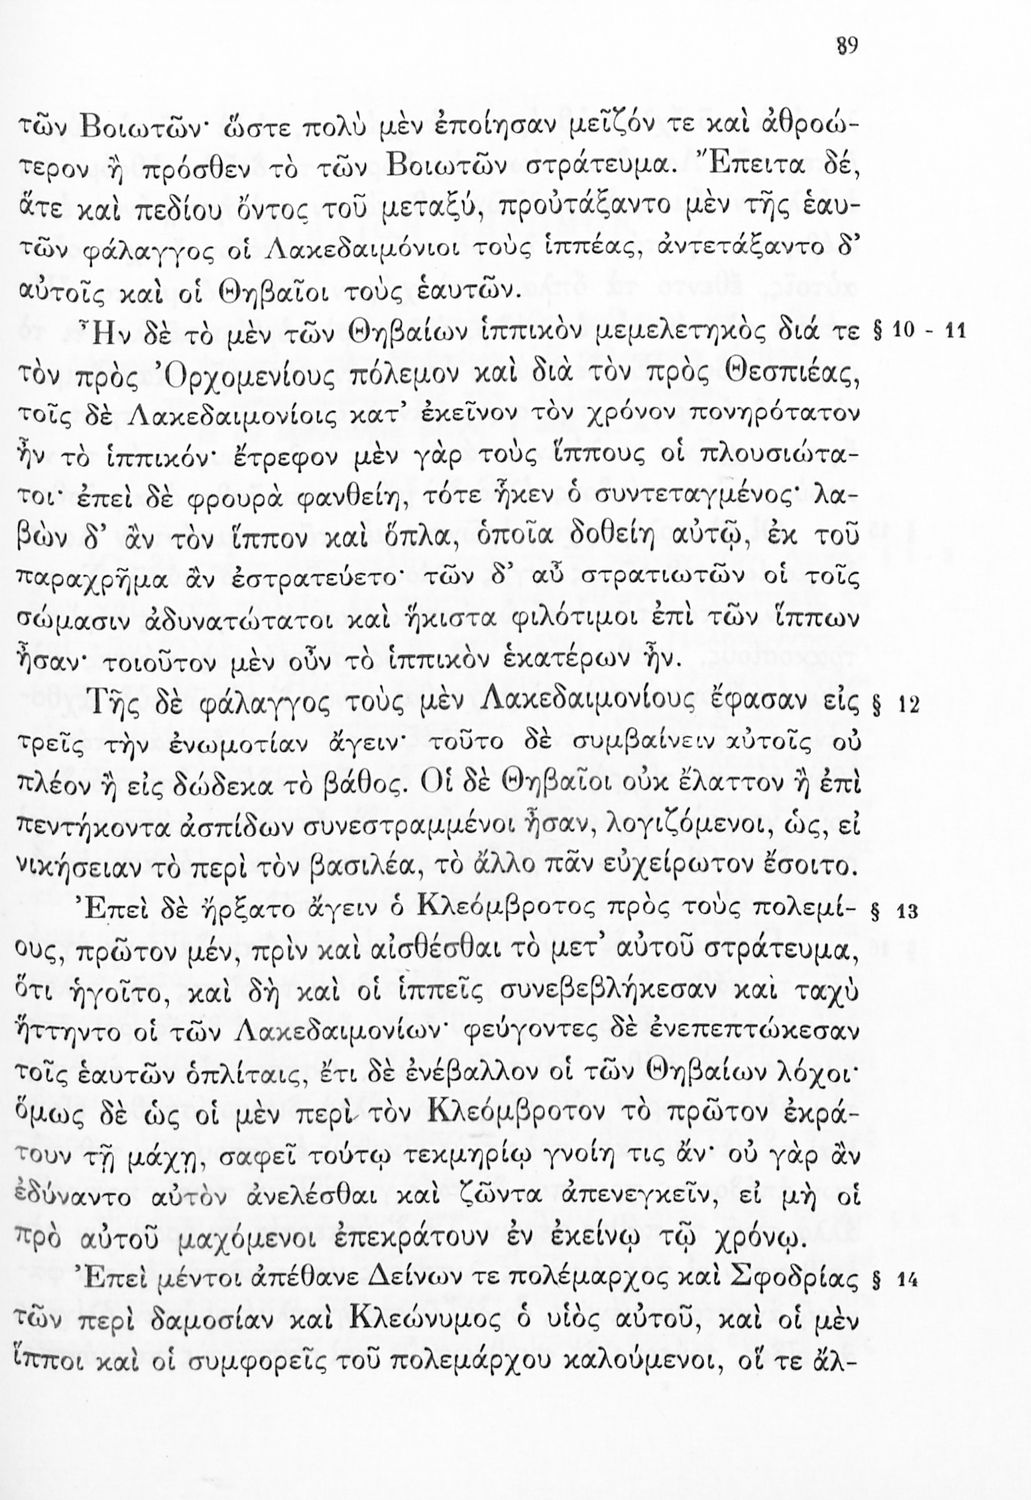 89
τῶν Βοιωτῶν· ὥστε πολὺ μὲν ἐποίησαν μεῖζόν τε καὶ ἀθροώ-
τερον ἢ πρόσθεν τὸ τῶν Βοιωτῶν στράτευμα. Ἔπειτα δέ,
ἅτε καὶ πεδίου ὄντος τοῦ μεταξύ, προὐτάξαντο μὲν τῆς ἑαυ-
τῶν φάλαγγος οἱ Λακεδαιμόνιοι τοὺς ἱππέας, ἀντετάξαντο δ’
αὐτοῖς καὶ οἱ Θηβαῖοι τοὺς ἑαυτῶν.
Ἦν δὲ τὸ μὲν τῶν Θηβαίων ἱππικὸν μεμελετηκὸς διά τε § 10 - 11
τὸν πρὸς Ὀρχομενίους πόλεμον καὶ διὰ τὸν πρὸς Θεσπιέας,
τοῖς δὲ Λακεδαιμονίοις κατ’ ἐκεῖνον τὸν χρόνον πονηρότατον
ἦν τὸ ἱππικόν· ἔτρεφον μὲν γὰρ τοὺς ἵππους οἱ πλουσιώτα-
τοι· ἐπεὶ δὲ φρουρὰ φανθείη, τότε ἧκεν ὁ συντεταγμένος· λα-
βὼν δ’ ἂν τὸν ἵππον καὶ ὅπλα, ὁποῖα δοθείη αὐτῷ, ἐκ τοῦ
παραχρῆμα ἂν ἐστρατεύετο· τῶν δ’ αὖ στρατιωτῶν οἱ τοῖς
σώμασιν ἀδυνατώτατοι καὶ ἥκιστα φιλότιμοι ἐπὶ τῶν ἵππων
ἦσαν· τοιοῦτον μὲν οὖν τὸ ἱππικὸν ἑκατέρων ἦν.
Τῆς δὲ φάλαγγος τοὺς μὲν Λακεδαιμονίους ἔφασαν εἰς § 12
τρεῖς τὴν ἐνωμοτίαν ἄγειν· τοῦτο δὲ συμβαίνειν αὐτοῖς οὐ
πλέον ἢ εἰς δώδεκα τὸ βάθος. Οἱ δὲ Θηβαῖοι οὐκ ἔλαττον ἢ ἐπὶ
πεντήκοντα ἀσπίδων συνεστραμμένοι ἦσαν, λογιζόμενοι, ὡς, εἰ
νικήσειαν τὸ περὶ τὸν βασιλέα, τὸ ἄλλο πᾶν εὐχείρωτον ἔσοιτο.
Ἐπεὶ δὲ ἤρξατο ἄγειν ὁ Κλεόμβροτος πρὸς τοὺς πολεμί- § 13
ους, πρῶτον μέν, πρὶν καὶ αἰσθέσθαι τὸ μετ’ αὐτοῦ στράτευμα,
ὅτι ἡγοῖτο, καὶ δὴ καὶ οἱ ἱππεῖς συνεβεβλήκεσαν καὶ ταχὺ
ἥττηντο οἱ τῶν Λακεδαιμονίων· φεύγοντες δὲ ἐνεπεπτώκεσαν
τοῖς ἑαυτῶν ὁπλίταις, ἔτι δὲ ἐνέβαλλον οἱ τῶν Θηβαίων λόχοι·
ὅμως δὲ ὡς οἱ μὲν περὶ τὸν Κλεόμβροτον τὸ πρῶτον ἐκρά-
τουν τῇ μάχῃ, σαφεῖ τούτῳ τεκμηρίῳ γνοίη τις ἄν· οὐ γὰρ ἂν
ἐδύναντο αὐτὸν ἀνελέσθαι καὶ ζῶντα ἀπενεγκεῖν, εἰ μὴ οἱ
πρὸ αὐτοῦ μαχόμενοι ἐπεκράτουν ἐν ἐκείνῳ τῷ χρόνῳ.
Ἐπεὶ μέντοι ἀπέθανε Δείνων τε πολέμαρχος καὶ Σφοδρίας § 14
τῶν περὶ δαμοσίαν καὶ Κλεώνυμος ὁ υἱὸς αὐτοῦ, καὶ οἱ μὲν
ἵπποι καὶ οἱ συμφορεῖς τοῦ πολεμάρχου καλούμενοι, οἵ τε ἄλ-